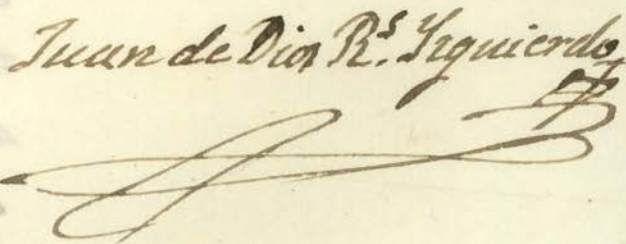 Juan de Dios R.s Yzquierdo